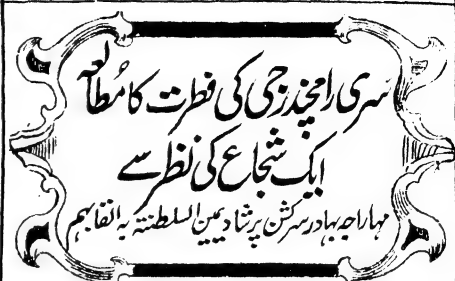 سری رامچندر جی کی فطرت کا مُطالعہ
ایک شجاع کی نظر سے
مہاراجہ بہادر سرکشن پرشاد یمین السلطنتہ بہ القابہم